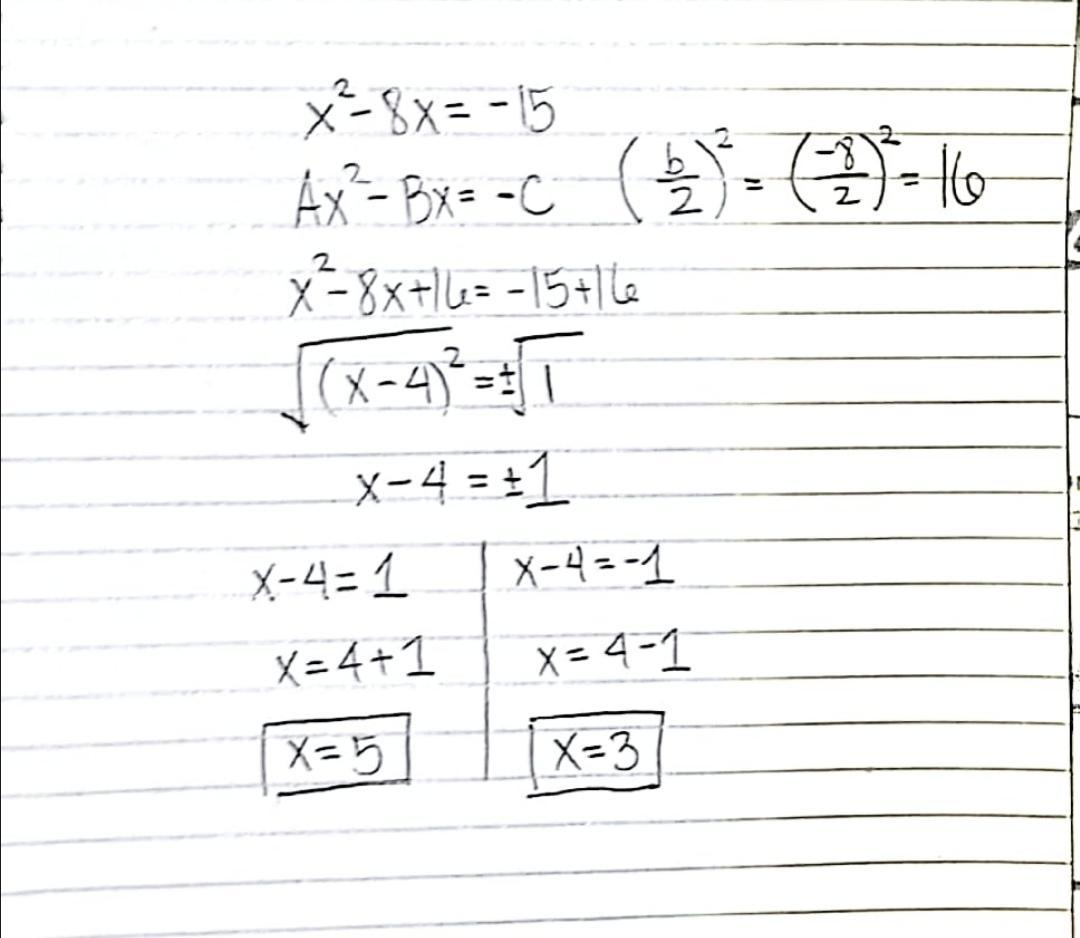 x² - 8x = -15
Ax² - Bx = -C (b/2)² = (-8/2)² = 16
x² - 8x + 16 = -15 + 16
√(x - 4)² = ±√1
x - 4 = ±1
x - 4 = 1 | x - 4 = -1
x = 4 + 1 | x = 4 - 1
x = 5 | x = 3